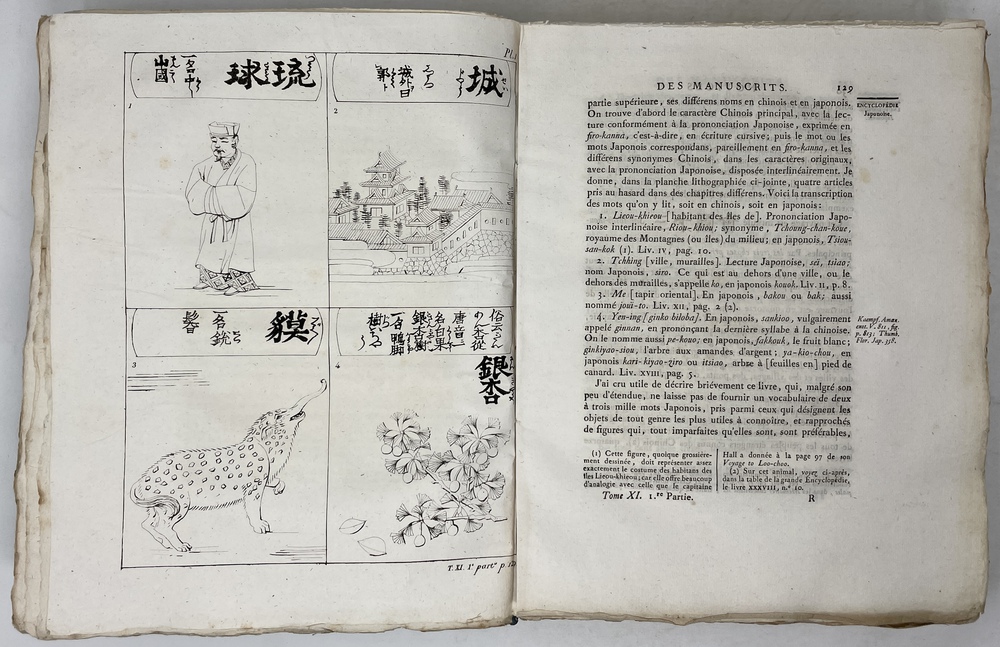 Pl.
琉球
一名中
山國
1
城
城外曰
郭
2
貘
3
俗云きん
のん木従
唐音
名白果
銀杏樹
一名鴨脚
樹
銀杏
4
T. XI. 1e part.e p.
DES MANUSCRITS. 129
partie supérieure, ses différens noms en chinois et en japonois.
On trouve d'abord le caractère Chinois principal, avec la lec-
ture conformément à la prononciation Japonoise, exprimée en
firo-kanna, c'est-à-dire, en écriture cursive; puis le mot ou les
mots Japonois correspondans, pareillement en firo-kanna, et les
différens synonymes Chinois, dans les caractères originaux,
avec la prononciation Japonoise, disposée interlinéairement. Je
donne, dans la planche lithographiée ci-jointe, quatre articles
pris au hasard dans des chapitres différens. Voici la transcription
des mots qu'on y lit, soit en chinois, soit en japonois:
1. Lieou-khieou [habitant des îles de]. Prononciation Japo-
noise interlinéaire, Riou-khiou; synonyme, Tchoung-chan-koue,
royaume des Montagnes (ou îles) du milieu; en japonois, Tsiou-
san-kok (1). Liv. IV, pag. 10.
2. Tchhing [ville, murailles]. Lecture Japonoise, sei, tsiao;
nom Japonois, siro. Ce qui est au dehors d'une ville, ou le
dehors des murailles, s'appelle ko, en japonois kouok. Liv. II, p. 8.
3. Me [tapir oriental]. En japonois, bakou ou bak; aussi
nommé jouï-to. Liv. XII, pag. 2 (2).
4. Yen-ing [ginko biloba]. En japonois, sankioo, vulgairement
appelé ginnan, en prononçant la dernière syllabe à la chinoise.
On le nomme aussi pe-kouo; en japonois, fakkouk, le fruit blanc;
ginkiyao-siou, l'arbre aux amandes d'argent; ya-kio-chou, en
japonois kari-kiyao-ziro ou itsiao, arbse à [feuilles en] pied de
canard. Liv. XVIII, pag. 5.
J'ai cru utile de décrire briévement ce livre, qui, malgré son
peu d'étendue, ne laisse pas de fournir un vocabulaire de deux
à trois mille mots Japonois, pris parmi ceux qui désignent les
objets de tout genre les plus utiles à connoître, et rapprochés
de figures qui, tout imparfaites qu'elles sont, sont préférables,
ENCYCLOPÉDIE
Japonoise.
Kaempf. Amæn.
exot. V. 811, fig.
p. 813; Thunb.
Flor. Jap. 358.
(1) Cette figure, quoique grossière-
ment dessinée, doit représenter assez
exactement le costume des habitans des
îles Lieou-khieou; car elle offre beaucoup
d'analogie avec celle que le capitaine
Hall a donnée à la page 97 de son
Voyage to Loo-choo.
(2) Sur cet animal, voyez ci-après,
dans la table de la grande Encyclopédie,
le livre XXXVIII, n.º 10.
Tome XI. 1.re Partie. R